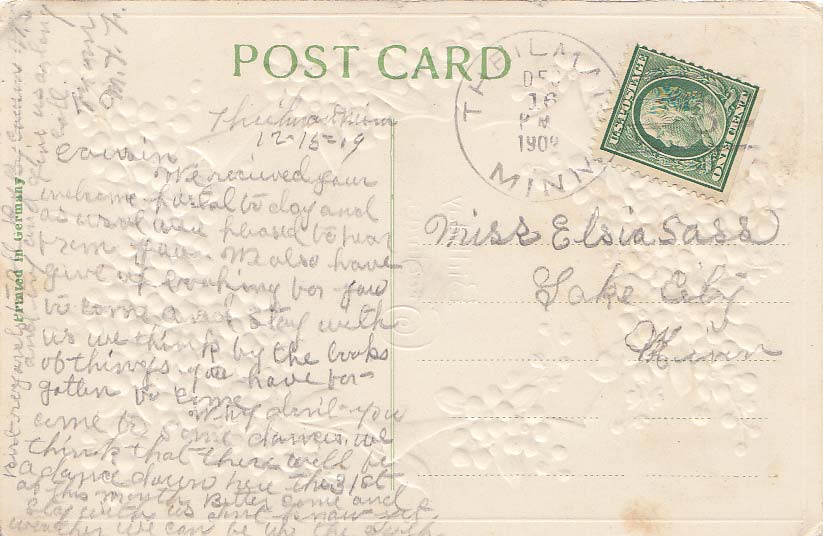 POST CARD
THEILMAN
DEC
16
PM
1909
MINN
U.S. POSTAGE
ONE CENT
Printed in Germany
Theilman Minn
12-15-09
Cousin
We received your
welcome postal to day and
as usual was pleased to hear
from you. We also have
give up looking for you
to come and stay with
us we think by the looks
of things you have for-
gotten to come
Why don't you
come to some dances, we
think that there will be
a dance down here the 31st
of this month Better come and
stay with us don't know
weather we can be up the
Miss Elsia Sass
Lake City
Minn
regards to all
from
M. T.